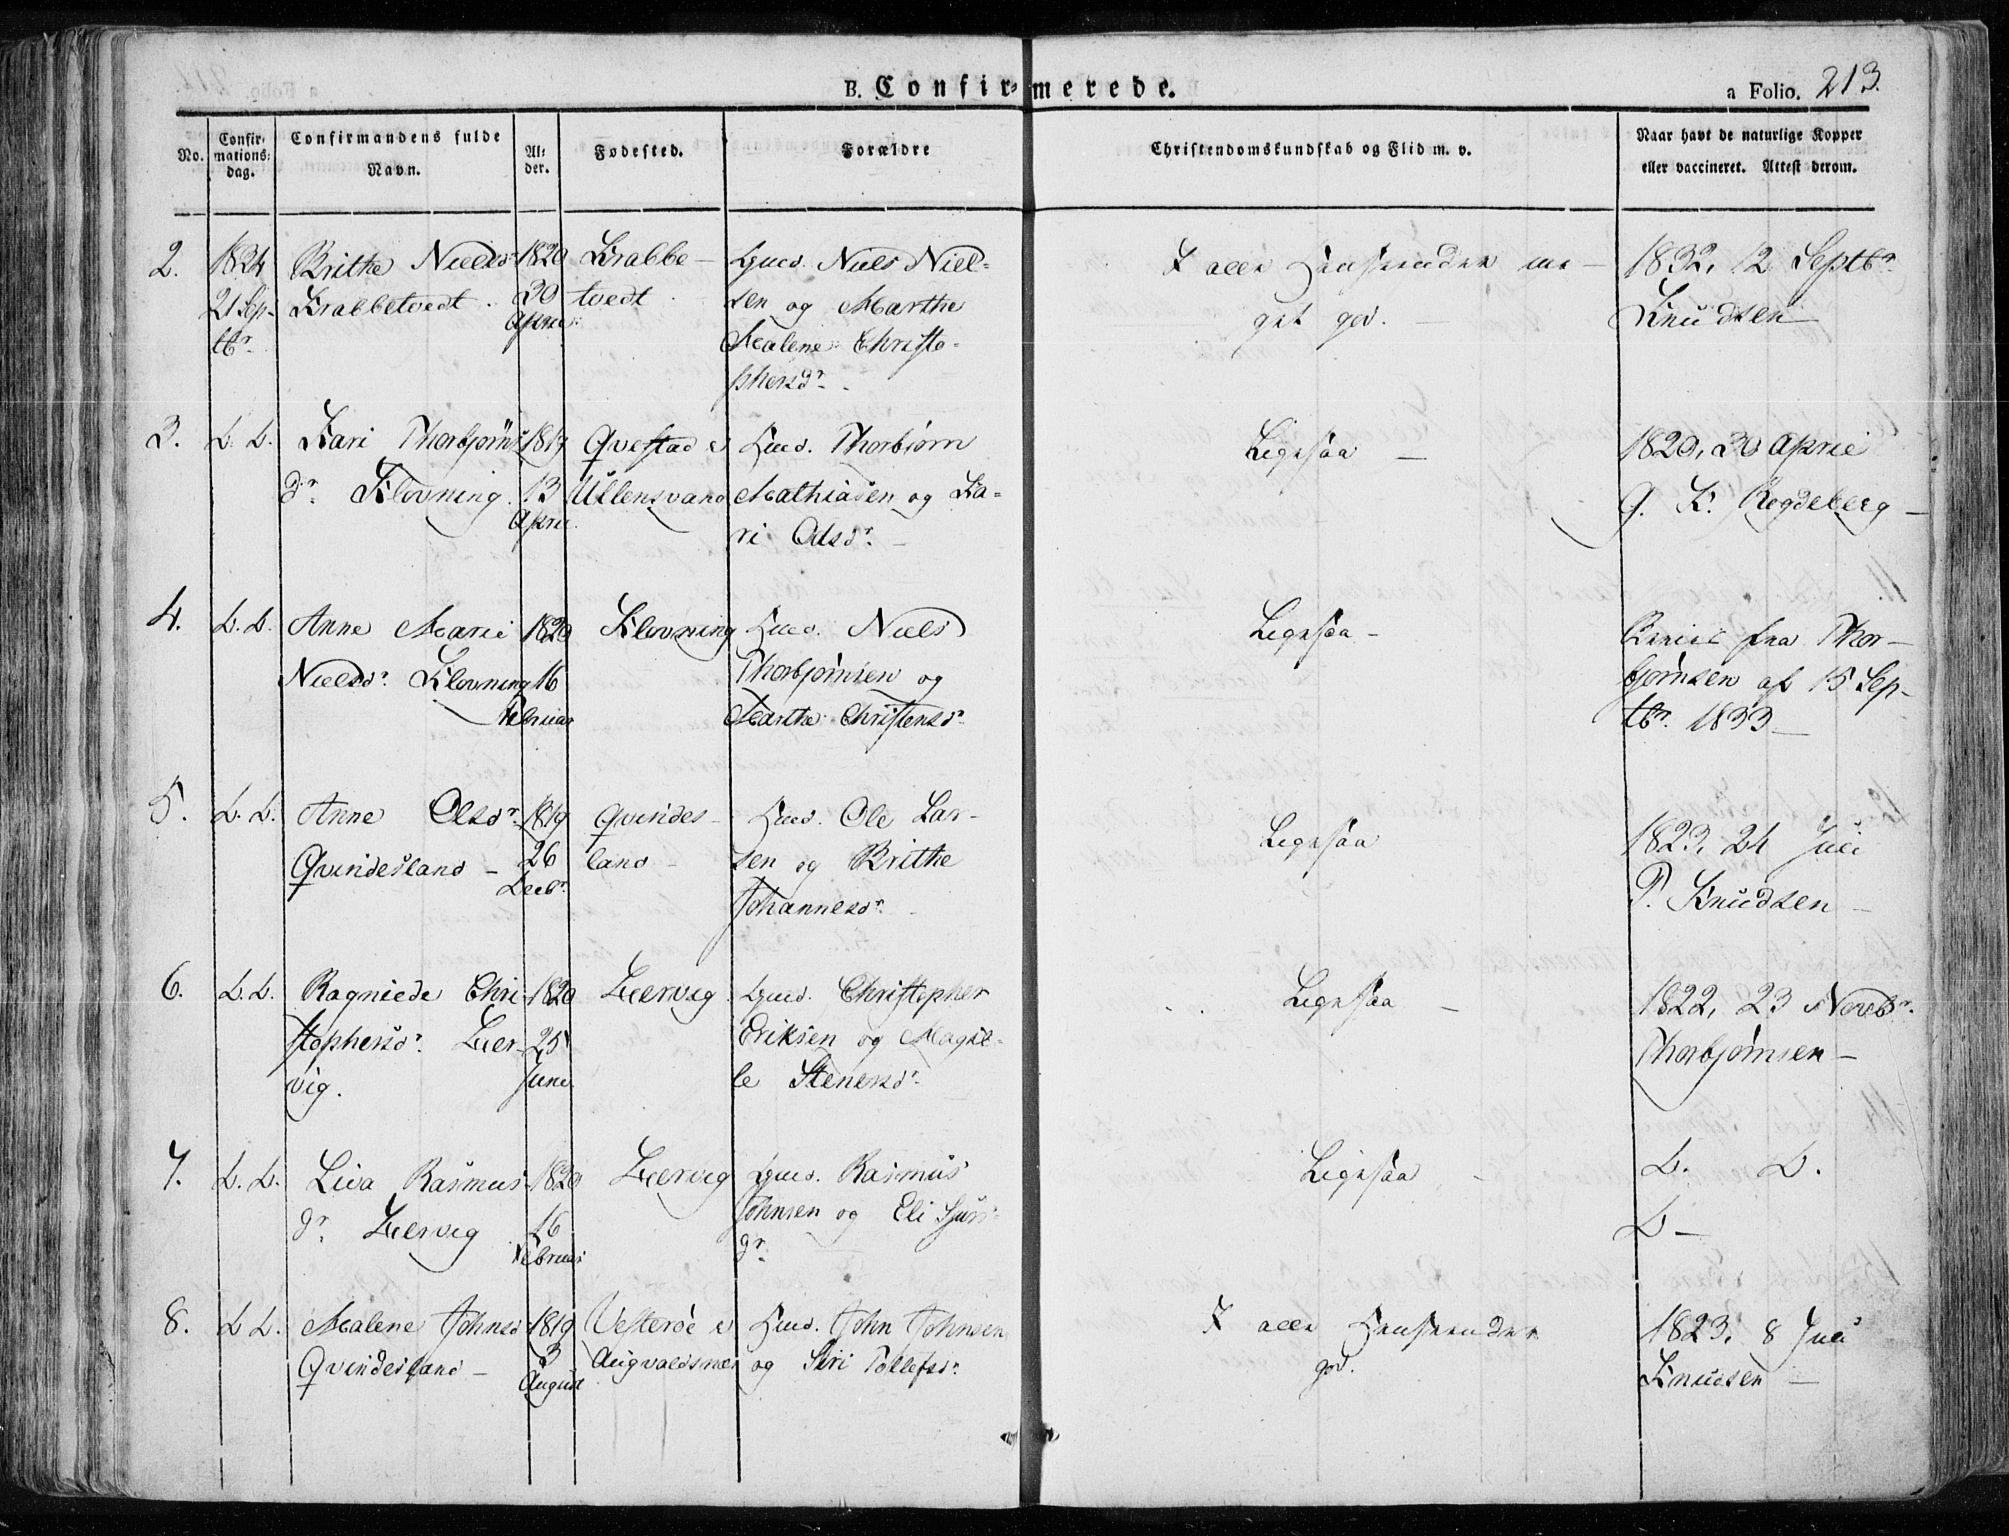 B. Confir- merede. a Folio. 213.
No.
Confir-
mations-
dag.
Confirmandens fulde
Navn.
Al-
der.
Fødested.
Forældre
Christendomskundskab og Flid m. v.
Naar havt de naturlige Kopper
eller vaccineret. Attest derom.
2.
21 Sep-
tbr.
Brithe Nielsdr
Krabbetvedt.
1820
30
April
Krabbe-
tvedt.
Gmd. Niels Niel-
sen og Marthe
Malene Christo-
phersdr.
I alle Henseender me-
get god.
1832, 12 Septbr.
Knudsen
3.
D. D.
Kari Thorbjørns
dr. Klovning.
1817
13
April
Qvestad i
Ullensvang
Hmd. Thorbjørn
Mathiasen og Ka-
ri Odsdr.
Ligesaa
1820, 30 April
G. K. Rogdeberg
4.
D. D.
Anne Marie
Nielsdr. Klovning
1820
16
Februar
Klovning
Hmd. Niels
Thorbjørnsen og
Marthe Christensdr.
Ligesaa
fra Thor-
bjørnsen af 15 Sep-
tbr. 1833
5.
D. D.
Anne Olsdr.
Qvindesland
1819
26
Decbr.
Qvindes-
land
Hmd. Ole Lar-
sen og Brithe
Johannesdr.
Ligesaa
1823, 24 Juli
P. Knudsen
6.
D. D.
Ragnilde Chri-
stophersdr. Leer-
vig.
1820
25
Juni
Leervig
Gmd. Christopher
Eriksen og Magil-
le Stenersdr.
Ligesaa
1822, 23 Novbr.
Thorbjørnsen
7.
D. D.
Liva Rasmus-
dr. Leervig
1820
16
Februar
Leervig
Gmd. Rasmus
Johnsen og Eli Sjurs-
dr.
Ligesaa
D. D.
D
8.
D. D.
Malene Johnsd
Qvindesland
1819
3
August
Vesterøe i
Augvaldsnæs
Hmd. John Johnsen
og Siri Tollefsdr.
I alle Henseender
god.
1823, 8 Juli
Knudsen